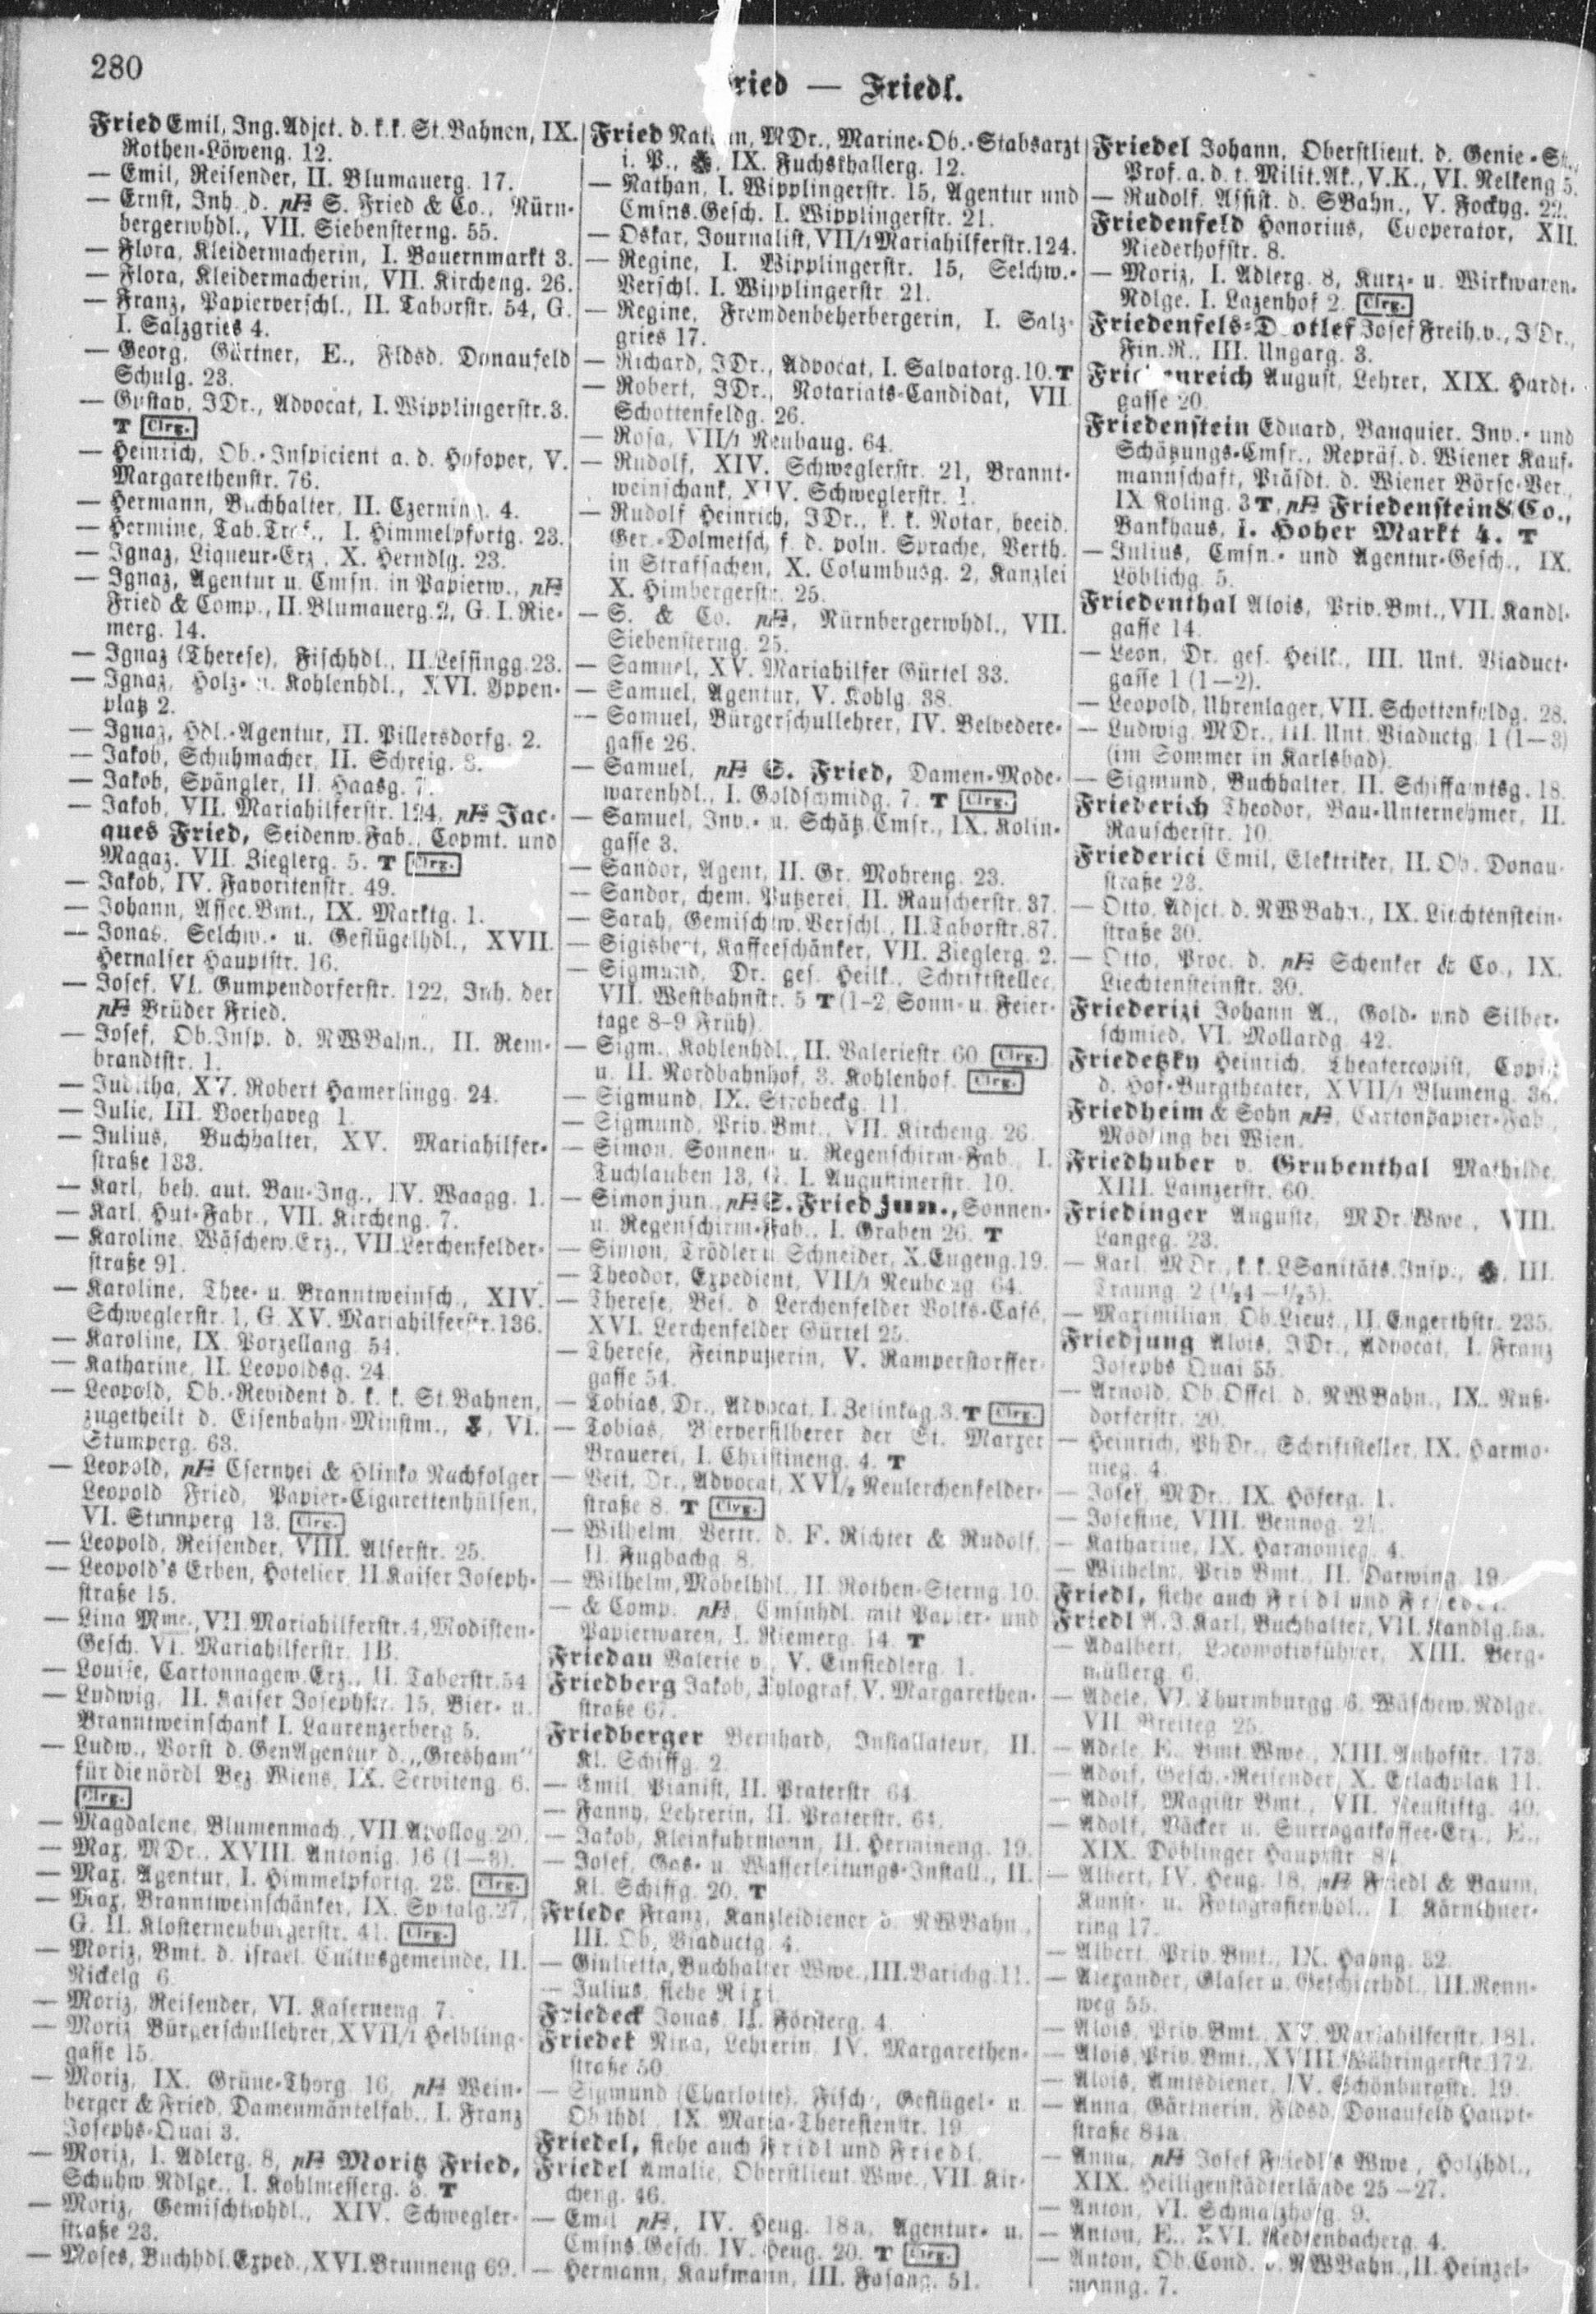 280
ried — Friedl.
Fried Emil, Ing. Adjct. d. k. k. St. Bahnen, IX.
Rothen-Löweng. 12.
— Emil, Reisender, II. Blumauerg. 17.
— Ernst, Inh. d. pH S. Fried & Co., Nürn-
bergerwhdl., VII. Siebensterng. 55.
— Flora, Kleidermacherin, I. Bauernmarkt 3.
— Flora, Kleidermacherin, VII. Kircheng. 26.
— Franz, Papierverschl., II. Taborstr. 54, G.
I. Salzgries 4.
— Georg, Gärtner, E., Fldsd. Donaufeld
Schulg. 23.
— Gustav, JDr., Advocat, I. Wipplingerstr. 3.
T Clrg.
— Heinrich, Ob.-Inspicient a. d. Hofoper, V.
Margarethenstr. 76.
— Hermann, Buchhalter, II. Czerning. 4.
— Hermine, Tab. Traf., I. Himmelpfortg. 23.
— Ignaz, Liqueur-Erz., X. Herndlg. 23.
— Ignaz, Agentur u. Cmsn. in Papierw., pH
Fried & Comp., II. Blumauerg. 2, G. I. Rie-
merg. 14.
— Ignaz (Therese), Fischhdl., II. Lessingg. 23.
— Ignaz, Holz- u. Kohlenhdl., XVI. Yppen-
platz 2.
— Ignaz, Hdl.-Agentur, II. Pillersdorfg. 2.
— Jakob, Schuhmacher, II. Schreig. 3.
— Jakob, Spängler, II. Haasg. 7.
— Jakob, VII. Mariahilferstr. 124, pH Jac-
ques Fried, Seidenw. Fab., Copmt. und
Magaz. VII. Zieglerg. 5. T Clrg.
— Jakob, IV. Favoritenstr. 49.
— Johann, Assec. Bmt., IX. Marktg. 1.
— Jonas, Selchw.- u. Geflügelhdl., XVII.
Hernalser Hauptstr. 16.
— Josef, VI. Gumpendorferstr. 122, Inh. der
pH Brüder Fried.
— Josef, Ob. Insp. d. NWBahn., II. Rem-
brandtstr. 1.
— Juditha, XV. Robert Hamerlingg. 24.
— Julie, III. Boerhaveg. 1.
— Julius, Buchhalter, XV. Mariahilfer-
straße 133.
— Karl, beh. aut. Bau-Ing., IV. Waagg. 1.
— Karl, Hut-Fabr., VII. Kircheng. 7.
— Karoline, Wäschew. Erz., VII. Lerchenfelder-
straße 91.
— Karoline, Thee- u. Branntweinsch., XIV.
Schweglerstr. 1, G. XV. Mariahilferstr. 136.
— Karoline, IX. Porzellang. 54.
— Katharine, II. Leopoldsg. 24.
— Leopold, Ob.-Revident d. k. k. St. Bahnen,
zugetheilt d. Eisenbahn-Minstm., VI.
Stumperg. 63.
— Leopold, pH Csernyei & Hlinka Nachfolger
Leopold Fried, Papier-Cigarettenhülsen,
VI. Stumperg. 13. Clrg.
— Leopold, Reisender, VIII. Alserstr. 25.
— Leopold's Erben, Hotelier, II. Kaiser Joseph-
straße 15.
— Lina Mme., VII. Mariahilferstr. 4, Modisten-
Gesch. VI. Mariahilferstr. 1B.
— Louise, Cartonnagew. Erz., II. Taborstr. 54
— Ludwig, II. Kaiser Josephstr. 15, Bier- u.
Branntweinschank I. Laurenzerberg 5.
— Ludw., Vorst d. GenAgentur d. „Gresham“
für die nördl. Bez. Wiens, IX. Serviteng. 6.
Clrg.
— Magdalene, Blumenmach., VII. Apollog. 20.
— Max, MDr., XVIII. Antonig. 16 (1—3).
— Max, Agentur, I. Himmelpfortg. 23. Clrg.
— Max, Branntweinschänker, IX. Spitalg. 27,
G. II. Klosterneuburgerstr. 41. Clrg.
— Moriz, Bmt. d. israel. Cultusgemeinde, II.
Nickelg. 6.
— Moriz, Reisender, VI. Kaserneng. 7.
— Moriz, Bürgerschullehrer, XVII/1 Helbling-
gasse 15.
— Moriz, IX. Grüne-Thorg. 16, pH Wein-
berger & Fried, Damenmäntelfab., I. Franz
Josephs-Quai 3.
— Moriz, I. Adlerg. 8, pH Moritz Fried,
Schuhw. Ndlge., I. Kohlmesserg. 3. T
— Moriz, Gemischtwhdl., XIV. Schwegler-
straße 23.
— Moses, Buchhdl. Exped., XVI. Brunneng. 69.
Fried Nathan, MDr., Marine-Ob.-Stabsarzt
i. P., IX. Fuchsthallerg. 12.
— Nathan, I. Wipplingerstr. 15, Agentur und
Cmsns. Gesch. I. Wipplingerstr. 21.
— Oskar, Journalist, VII/1 Mariahilferstr. 124.
— Regine, I. Wipplingerstr. 15, Selchw.-
Verschl. I. Wipplingerstr. 21.
— Regine, Fremdenbeherbergerin, I. Salz-
gries 17.
— Richard, JDr., Advocat, I. Salvatorg. 10. T
— Robert, JDr., Notariats-Candidat, VII.
Schottenfeldg. 26.
— Rosa, VII/1 Neubaug. 64.
— Rudolf, XIV. Schweglerstr. 21, Brannt-
weinschank, XIV. Schweglerstr. 1.
— Rudolf Heinrich, JDr., k. k. Notar, beeid.
Ger.-Dolmetsch f. d. poln. Sprache, Verth.
in Strafsachen, X. Columbusg. 2, Kanzlei
X. Himbergerstr. 25.
— S. & Co. pH, Nürnbergerwhdl., VII.
Siebensterng. 25.
— Samuel, XV. Mariahilfer Gürtel 33.
— Samuel, Agentur, V. Kohlg. 38.
— Samuel, Bürgerschullehrer, IV. Belvedere-
gasse 26.
— Samuel, pH S. Fried, Damen-Mode-
warenhdl., I. Goldschmidg. 7. T Clrg.
— Samuel, Inv.- u. Schätz. Cmsr., IX. Kolin-
gasse 3.
— Sandor, Agent, II. Gr. Mohreng. 23.
— Sandor, chem. Putzerei, II. Rauscherstr. 37.
— Sarah, Gemischtw. Verschl., II. Taborstr. 87.
— Sigisbert, Kaffeeschänker, VII. Zieglerg. 2.
— Sigmund, Dr. ges. Heilk., Schriftsteller,
VII. Westbahnstr. 5 T (1–2, Sonn- u. Feier-
tage 8–9 Früh).
— Sigm., Kohlenhdl., II. Valeriestr. 60 Clrg.
u. II. Nordbahnhof, 3. Kohlenhof. Clrg.
— Sigmund, IX. Strobeckg. 11.
— Sigmund, Priv. Bmt., VII. Kircheng. 26.
— Simon, Sonnen- u. Regenschirm-Fab., I.
Tuchlauben 13, G. I. Augustinerstr. 10.
— Simon jun., pH S. Fried jun., Sonnen-
u. Regenschirm-Fab., I. Graben 26. T
— Simon, Trödler u. Schneider, X. Eugeng. 19.
— Theodor, Expedient, VII/1 Neubaug. 64.
— Therese, Bes. d. Lerchenfelder Volks-Café,
XVI. Lerchenfelder Gürtel 25.
— Therese, Feinputzerin, V. Ramperstorffer-
gasse 54.
— Tobias, Dr., Advocat, I. Zelinkag. 3. T Clrg.
— Tobias, Bierversilberer der St. Marxer
Brauerei, I. Christineng. 4. T
— Veit, Dr., Advocat, XVI/2 Neulerchenfelder-
straße 8. T Clrg.
— Wilhelm, Vertr. d. F. Richter & Rudolf,
II. Fugbachg. 8.
— Wilhelm, Möbelhdl., II. Rothen-Sterng. 10.
— & Comp. pH, Cmsnhdl. mit Papier- und
Papierwaren, I. Riemerg. 14. T
Friedau Valerie v., V. Einsiedlerg. 1.
Friedberg Jakob, Xylograf, V. Margarethen-
straße 67.
Friedberger Bernhard, Installateur, II.
Kl. Schiffg. 2.
— Emil, Pianist, II. Praterstr. 64.
— Fanny, Lehrerin, II. Praterstr. 64.
— Jakob, Kleinfuhrmann, II. Hermineng. 19.
— Josef, Gas- u. Wasserleitungs-Install., II.
Kl. Schiffg. 20. T
Friede Franz, Kanzleidiener d. NWBahn.,
III. Ob. Viaductg. 4.
— Giulietta, Buchhalter Wwe., III. Barichg. 11.
— Julius, siehe Rixi.
Friedeck Jonas, II. Försterg. 4.
Friedek Nina, Lehrerin, IV. Margarethen-
straße 50.
— Sigmund (Charlotte), Fisch-, Geflügel- u.
Obsthdl., IX. Maria-Theresienstr. 19.
Friedel, siehe auch Fridl und Friedl.
Friedel Amalie, Oberstlieut. Wwe., VII. Kir-
cheng. 46.
— Emil pH, IV. Heug. 18a, Agentur- u.
Cmsns. Gesch. IV. Heug. 20. T Clrg.
— Hermann, Kaufmann, III. Fasang. 51.
Friedel Johann, Oberstlieut. d. Genie-
Prof. a. d. t. Milit. Ak., V. K., VI. Nelkeng. 5.
— Rudolf, Assist. d. SBahn., V. Fockyg. 22.
Friedenfeld Honorius, Cooperator, XII.
Niederhofstr. 8.
— Moriz, I. Adlerg. 8, Kurz- u. Wirkwaren-
Ndlge. I. Lazenhof 2. Clrg.
Friedenfels-Dotlef Josef Freih. v., JDr.,
Fin. R., III. Ungarg. 3.
Friedenreich August, Lehrer, XIX. Hardt-
gasse 20.
Friedenstein Eduard, Banquier, Inv.- und
Schätzungs-Cmsr., Repräs. d. Wiener Kauf-
mannschaft, Präsdt. d. Wiener Börse-Ver.,
IX. Koling. 3 T, pH Friedenstein & Co.,
Bankhaus, I. Hoher Markt 4. T
— Julius, Cmsn.- und Agentur-Gesch., IX.
Löblichg. 5.
Friedenthal Alois, Priv. Bmt., VII. Kandl-
gasse 14.
— Leon, Dr. ges. Heilk., III. Unt. Viaduct-
gasse 1 (1—2).
— Leopold, Uhrenlager, VII. Schottenfeldg. 28.
— Ludwig, MDr., III. Unt. Viaductg. 1 (1—3)
(im Sommer in Karlsbad).
— Sigmund, Buchhalter, II. Schiffamtsg. 18.
Friederich Theodor, Bau-Unternehmer, II.
Rauscherstr. 10.
Friederici Emil, Elektriker, II. Ob. Donau-
straße 23.
— Otto, Adjct. d. NWBahn., IX. Liechtenstein-
straße 30.
— Otto, Proc. d. pH Schenker & Co., IX.
Liechtensteinstr. 30.
Friederizi Johann A., Gold- und Silber-
schmied, VI. Mollardg. 42.
Friedetzky Heinrich, Theatercopist, Copist
d. Hof-Burgtheater, XVII/1 Blumeng. 36.
Friedheim & Sohn pH, Cartonpapier-Fab.,
Mödling bei Wien.
Friedhuber v. Grubenthal Mathilde,
XIII. Lainzerstr. 60.
Friedinger Auguste, MDr. Wwe., VIII.
Langeg. 23.
— Karl, MDr., k. k. LSanitäts. Insp., III.
Traung. 2 (1/24—1/25).
— Maximilian, Ob. Lieut., II. Engerthstr. 235.
Friedjung Alois, JDr., Advocat, I. Franz
Josephs Quai 55.
— Arnold, Ob. Offcl. d. NWBahn., IX. Nuß-
dorferstr. 20.
— Heinrich, PhDr., Schriftsteller, IX. Harmo-
nieg. 4.
— Josef, MDr., IX. Höferg. 1.
— Josefine, VIII. Bennog.
— Katharine, IX. Harmonieg. 4.
— Wilhelm, Priv. Bmt., II. Darwing. 19.
Friedl, siehe auch Fridl und Friedel.
Friedl A. J. Karl, Buchhalter, VII. Kandlg. 5a.
— Adalbert, Locomotivführer, XIII. Berg-
müllerg. 6.
— Adele, VI. Thurmburgg. 6, Wäschew. Ndlge.
VII. Breiteg. 25.
— Adele, E., Bmt. Wwe., XIII. Auhofstr. 173.
— Adolf, Gesch.-Reisender, X. Erlachplatz 11.
— Adolf, Magistr. Bmt., VII. Neustiftg. 40.
— Adolf, Bäcker u. Surrogatkaffee-Erz., E.,
XIX. Döblinger Hauptstr. 84.
— Albert, IV. Heug. 18, pH Friedl & Baum,
Kunst- u. Fotografienhdl., I. Kärnthner-
ring 17.
— Albert, Priv. Bmt., IX. Hahng. 32.
— Alexander, Glaser u. Geschierhdl., III. Renn-
weg 55.
— Alois, Priv. Bmt., XV. Mariahilferstr. 181.
— Alois, Priv. Bmt., XVIII. Währingerstr. 172.
— Alois, Amtsdiener, IV. Schönburgstr. 19.
— Anna, Gärtnerin, Fldsd. Donaufeld Haupt-
straße 84a.
— Anna, pH Josef Friedl's Wwe., Holzhdl.,
XIX. Heiligenstädterlände 25—27.
— Anton, VI. Schmalzhofg. 9.
— Anton, E., XVI. Redtenbacherg. 4.
— Anton, Ob. Cond. d. NWBahn., II. Heinzel-
manng. 7.